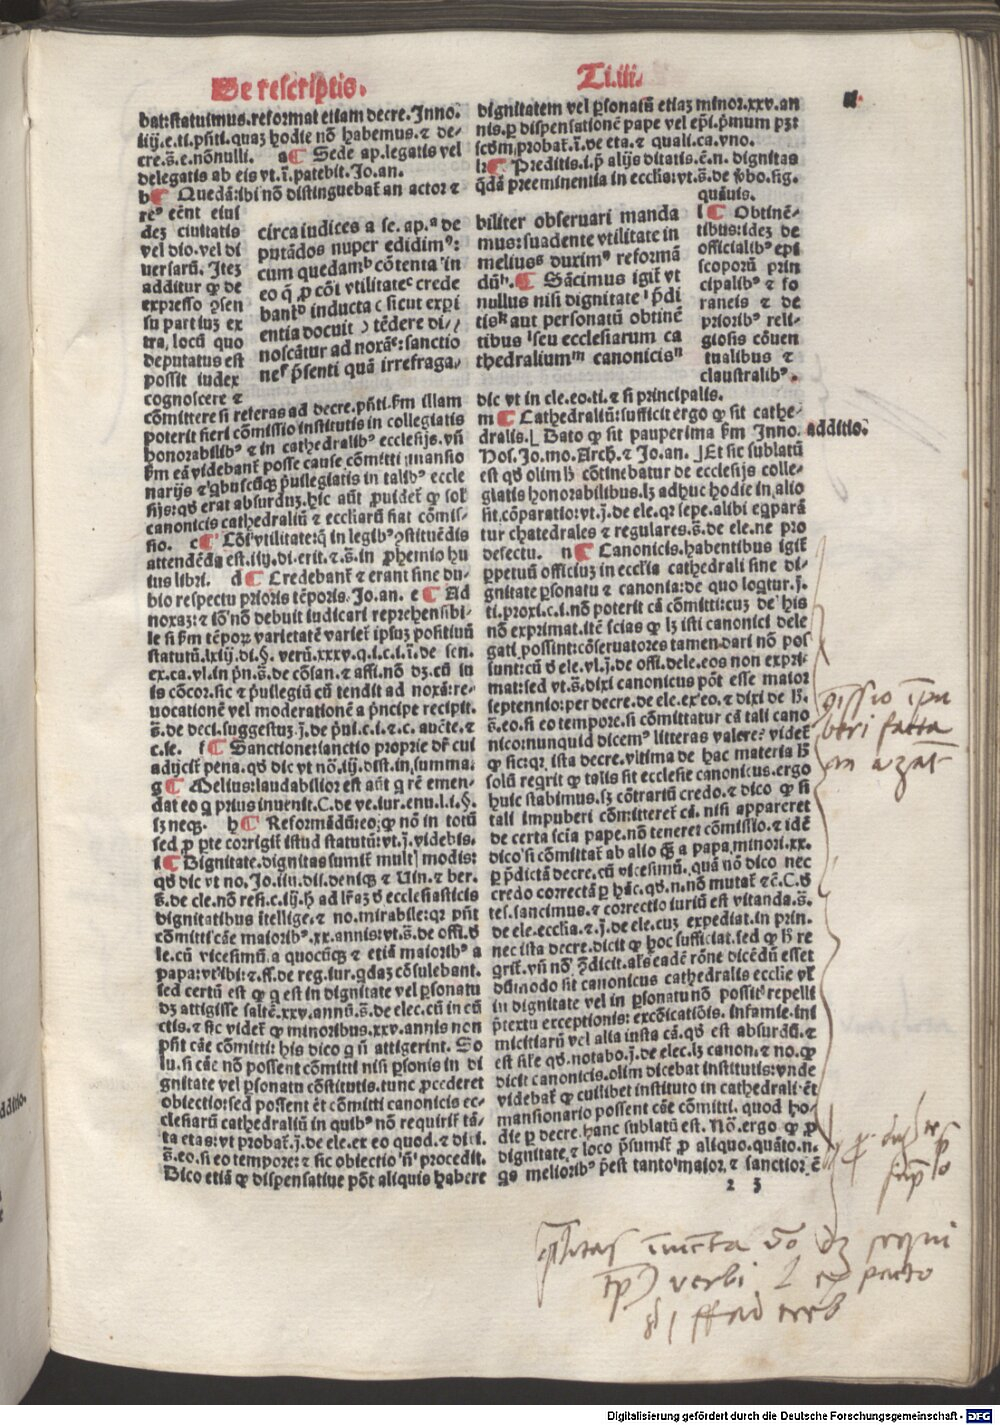 De rescriptis.
Ti.iii.
bat:statuimus.reformat etiam decre. Inno.
iiij.e.ti.pñti.quaz hodie nõ habemus.⁊ de-
cre.s̃.e.nõnulli. a Sede ap.legatis vel
delegatis ab eis vt.ĩ.patebit.Jo.an.
b Quedã:ibi nõ distinguebat̃ an actor ⁊
reꝰ eẽnt eius
dez ciuitatis
vel dio.vel di
uersarũ. Itez
additur ꝙ de
expresso ꝯsen
su partiuz ex
tra, locũ quo
deputatus est
possit iudex
cognoscere ⁊
cõmittere si referas ad decre.pñti.ẜm illam
poterit fieri cõmissio institutis in collegiatis
honorabilibꝰ ⁊ in cathedralibꝰ ecclesijs.vñ
ẜm eã videbant̃ posse cause cõmitti mansio
narijs ⁊ qͥbuscũꝗ p̃uilegiatis in talibꝰ eccle
sijs:qđ erat absurduz.hic aũt ꝓuidet̃ ꝙ sol̃
canonicis cathedraliũ ⁊ eccliarũ fiat cõmis-
sio. c Cõi vtilitate:q̃ in legibꝰ ꝯstituẽdis
attendẽda est.iiij.di.erit.⁊.s̃.in ꝓhemio hu
ius libri. d Credebant̃ ⁊ erant sine du-
bio respectu prioris tẽporis.Jo.an. e Ad
noxaz:⁊ iõ nõ debuit iudicari reprehensibi-
le si ẜm tẽpoꝝ varietatẽ variet̃ ipsuz positiuũ
statutũ.lxiij.di.§. verũ.xxxv.q.i.c.i.ĩ.de sen.
ex.ca.vl.in p̃n.s̃.de cõsan.⁊ affi.nõ dz.cũ iu
is cõcor.sic ⁊ p̃uilegiũ cũ tendit ad noxã:re-
uocationẽ vel moderationẽ a p̃ncipe recipit.
s̃.de deci.suggestuz.j̃.de p̃ui.c.i.⁊.c. aucte.⁊
c.se. f Sanctione:sanctio proprie dr̃ cui
adijcit̃ pena.qđ dic vt nõ.iij.dist.in.summa.
g Melius:laudabilior est aũt q rẽ emen-
dat eo q prius inuenit.C.de ve.iur.enu.l.i.§.
sz neqꝫ. h Reformãdũ:eo:ꝙ nõ in totũ
sed ꝓ ꝑte corrigit̃ istud statutũ:vt.j̃.videbis.
i Dignitate.dignitas sumit̃ mult; modis:
qđ dic vt no. Jo.iiii.dis.deniqꝫ ⁊ Uin.⁊ ber.
s̃.de cle.nõ resi.c.iij.h̃ ad lr̃az đ ecclesiasticis
dignitatibus ĩtellige.⁊ no.mirabile:qr pñt
cõmitti cãe maioribꝰ.xx.annis:vt.s̃.de offi.đ
le.cũ vicesimũ.a quocũꝗ ⁊ etiã maioribꝰ a
papa:vt ibi:⁊.ff.de reg.iur.qdaz cõsulebant.
sed certũ est ꝙ q est in dignitate vel ꝑsonatu
dz attigisse saltẽ.xxv.annũ.s̃.de elec.cũ in cũ
ctis.⁊ sic videt̃ ꝙ minoribus.xxv.annis non
pñt cãe cõmitti: his dico q ñ attigerint. So
lu.si cãe nõ possent cõmitti nisi ꝑsonis in di
gnitate vel ꝑsonatu cõstitutis.tunc ꝓcederet
obiectio:sed possent ẽt cõmitti canonicis ec-
clesiarũ cathedraliũ in quibꝰ nõ requirit̃ tã-
ta etas:vt probat̃.j̃.de ele.ex eo quod.⁊ dixi.
s̃.eo.si eo tempore:⁊ sic obiectio ñ procedit.
Dico etiã ꝙ dispensatiue põt aliquis habere
circa iudices a se. ap.ᵃ de
putãdos nuper edidimꝰ:
cum quedamᵇ cõtenta in
eo q̃ ꝓ cõi vtilitateᶜ crede
bantᵈ inducta ( sicut exꝑi
entia docuit ) tẽdere di//
noscãtur ad noxãᵉ:sanctio
neᶠ p̃senti quã irrefraga-
biliter obseruari manda
mus:suadente vtilitate in
meliusᵍ duximꝰ reformã
dũʰ. Sãcimus igit̃ vt
nullus nisi dignitateⁱ p̃di
tisᵏ aut personatũ obtinẽ
tibusˡ seu ecclesiarum ca
thedraliumᵐ canonicisⁿ
dignitatem vel ꝑsonatũ etiaz minor.xxv.an
nis.ꝑ dispensationẽ pape vel ep̃i.p̃mum pꝫ:
scõm,probat̃.ĩ.de eta.⁊ quali.ca.vno.
k Preditis.i.p̃ alijs ditatis.ẽ.n. dignitas
q̃dã preeminentia in ecclĩs:vt.s̃.de vbo.sig.
quãuis.
l Obtinẽ-
tibus:idez de
officialibꝰ epi
scoporũ prin
cipalibꝰ ⁊ fo
raneis ⁊ de
prioribꝰ reli-
giosis cõuen
tualibus ⁊
claustralibꝰ.
dic vt in cle.eo.ti.⁊ si principalis.
m Cathedraliũ:sufficit ergo ꝙ sit cathe-
dralis.[ Dato ꝙ sit pauperima ẜm Inno.
additio.
Hos.Jo.mo.Arch.⁊ Jo.an. ]Et sic sublatũ
est qđ olim h̃ cõtinebatur de ecclesijs colle-
giatis honorabilibus.lz adhuc hodie in alio
fit cõparatio:vt.j̃.de ele.qr sepe.alibi eq̃parã
tur chatedrales ⁊ regulares.s̃.de ele.ne pro
defectu. n Canonicis.habentibus igit̃
ꝑpetuũ officiuz in ecclĩa cathedrali sine di-
gnitate ꝑsonatu ⁊ canonia:de quo loqtur.j̃.
ti.proxi.c.i.nõ poterit cã cõmitti:cuz de his
nõ exprimat.itẽ scias ꝙ lz isti canonici dele
gati possint:cõseruatores tamen dari nõ pos
sunt:cũ đ ele.vl.j̃.de offi.dele.eos non expri-
mat:sed vt.s̃.dixi canonicus põt esse maior
septennio:per decre.de ele.ex eo.⁊ dixi de h̃.
s̃.eo.si eo tempore.si cõmittatur cã tali cano
nico:nunquid dicemꝰ litteras valere? videt̃
ꝙ sic:qr ista decre.vltima de hac materia h̃
solũ reqrit ꝙ talis sit ecclesie canonicus.ergo
huic stabimus.sz cõtrariũ credo.⁊ dico ꝙ si
tali impuberi cõmitteret̃ cã. nisi appareret
de certa scia pape.nõ teneret cõmissio.⁊ idẽ
dico si cõmittat̃ ab alio ꝗ̃ a papa minori.xx.
ꝑ p̃dictã decre.cũ vicesimũ.quã nõ dico nec
credo correctã ꝑ hãc.qđ.n.nõ mutat̃ ⁊c̃.C.đ
tes.sancimus.⁊ correctio iuriũ est vitanda.s̃.
de ele.ecclĩa.⁊.j̃.de ele.cuz expediat.in prin.
nec ista decre.dicit ꝙ hoc sufficiat.sed ꝙ h̃ re
qrit̃. vñ nõ p̃dicit.als eadẽ rõne dicẽdũ esset
dũmodo sit canonicus cathedralis ecclie vl̃
in dignitate vel in ꝑsonatu nõ possit repelli
p̃textu exceptionis: excõicatiõis. infamie.ini
micitiarũ vel alia iusta cã.qđ est absurdũ.⁊
est sil̃e qđ.notabo.j̃.de elec.lz canon.⁊ no.ꝙ
dicit canonicis.olim dicebat institutis:vnde
videbat̃ ꝙ cuilibet instituto in cathedrali ẽt
mansionario possent cãe cõmitti. quod ho-
die ꝑ decre.hanc sublatũ est. Nõ.ergo ꝙ ꝓ
dignitate ⁊ loco p̃sumit̃ ꝓ aliquo.quãto.n.
qs melioribꝰ p̃est tanto maior.⁊ sanctior ẽ
2 3